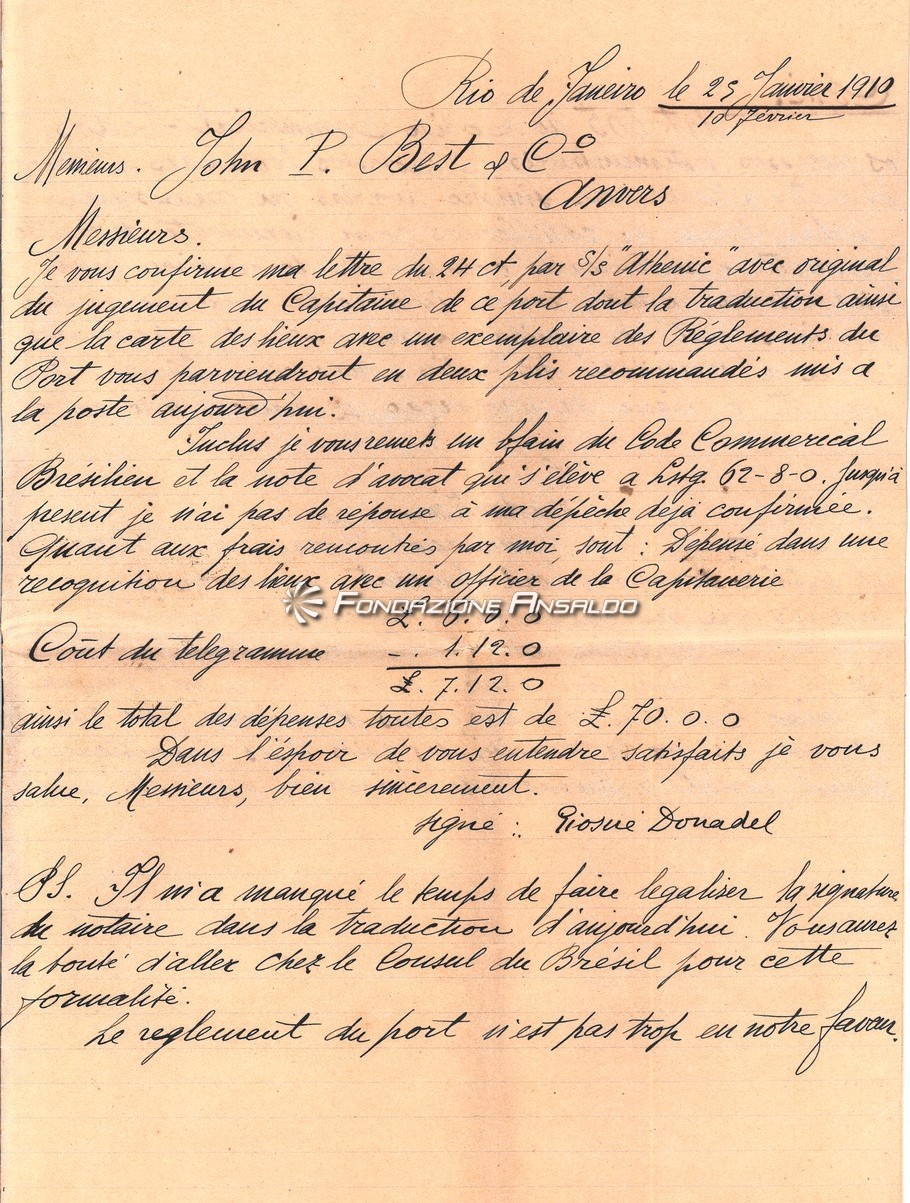 Rio de Janeiro le 25 Janvier 1910
10 février
Messieurs. John P. Best & Cº
Anvers
Messieurs.
Je vous confirme ma lettre du 24 ct, par s/s "Athenic" avec original
du jugement du Capitaine de ce port dont la traduction ainsi
que la carte des lieux avec un exemplaire des Réglements du
Port vous parviendrout en deux plis recommandés mis a
la poste aujourd'hui.
Inclus je vous remets un du Code Commerical
Brésilien et la note d'avocat qui s'élève a Lstg. 62-8-0. Jusqu'à
present je n'ai pas de réponse à ma dépêche déjà confirmée.
Quant aux frais remontés par moi, sont : Dépensé dans une
recognition des lieux avec un officier de la Capitanerie
FONDAZIONE ANSALDO
£. 6.0.0
Coût du telegramme -. 1.12.0
£. 7.12.0
ainsi le total des dépenses toutes est de £. 70.0.0
Dans l'éspoir de vous entendre satisfaits je vous
salue, Messieurs, bien sincerement.
signé : Giosué Donadel
PS. Il m'a manqué le temps de faire legaliser la signature
du notaire dans la traduction d'aujourd'hui. Vous aurez
la bonté d'aller chez le Consul du Brésil pour cette
formalité.
Le reglement du port n'est pas trop en notre faveur.